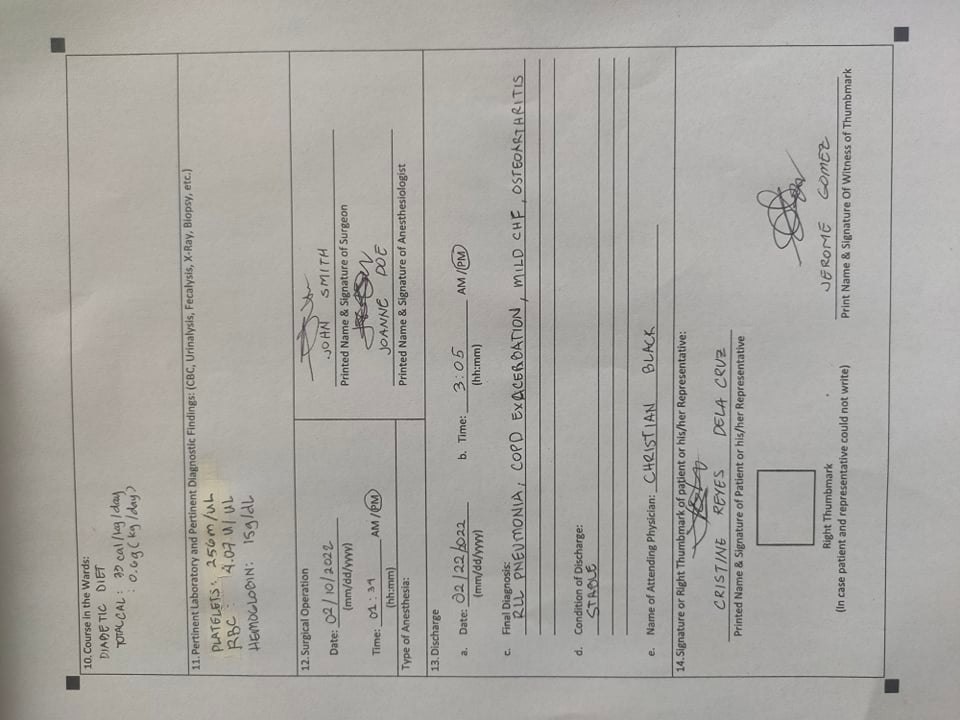 10. Course in the Wards:
DIABETIC DIET
TOTAL CAL: 33 cal/kg/day
: 0.6g (kg/day)
11. Pertinent Laboratory and Pertinent Diagnostic Findings: (CBC, Urinalysis, Fecalysis, X-Ray, Biopsy, etc.)
PLATELETS: 256m/uL
RBC : 4.07 U/uL
HEMOGLOBIN: 15g/dL
12. Surgical Operation
Date: 02/10/2022
(mm/dd/yyyy)
Time: 01:39 AM / PM
(hh:mm)
Type of Anesthesia:
JOHN SMITH
Printed Name & Signature of Surgeon
JOANNE DOE
Printed Name & Signature of Anesthesiologist
13. Discharge
a. Date: 02/22/2022 b. Time: 3:05 AM / PM
(mm/dd/yyyy) (hh:mm)
c. Final Diagnosis:
RLL PNEUMONIA, COPD EXACERBATION, MILD CHF, OSTEOARTHRITIS
d. Condition of Discharge:
STABLE
e. Name of Attending Physician: CHRISTIAN BLACK
14. Signature or Right Thumbmark of patient or his/her Representative:
CRISTINE REYES DELA CRUZ
Printed Name & Signature of Patient or his/her Representative
Right Thumbmark
(In case patient and representative could not write)
JEROME GOMEZ
Print Name & Signature Of Witness of Thumbmark